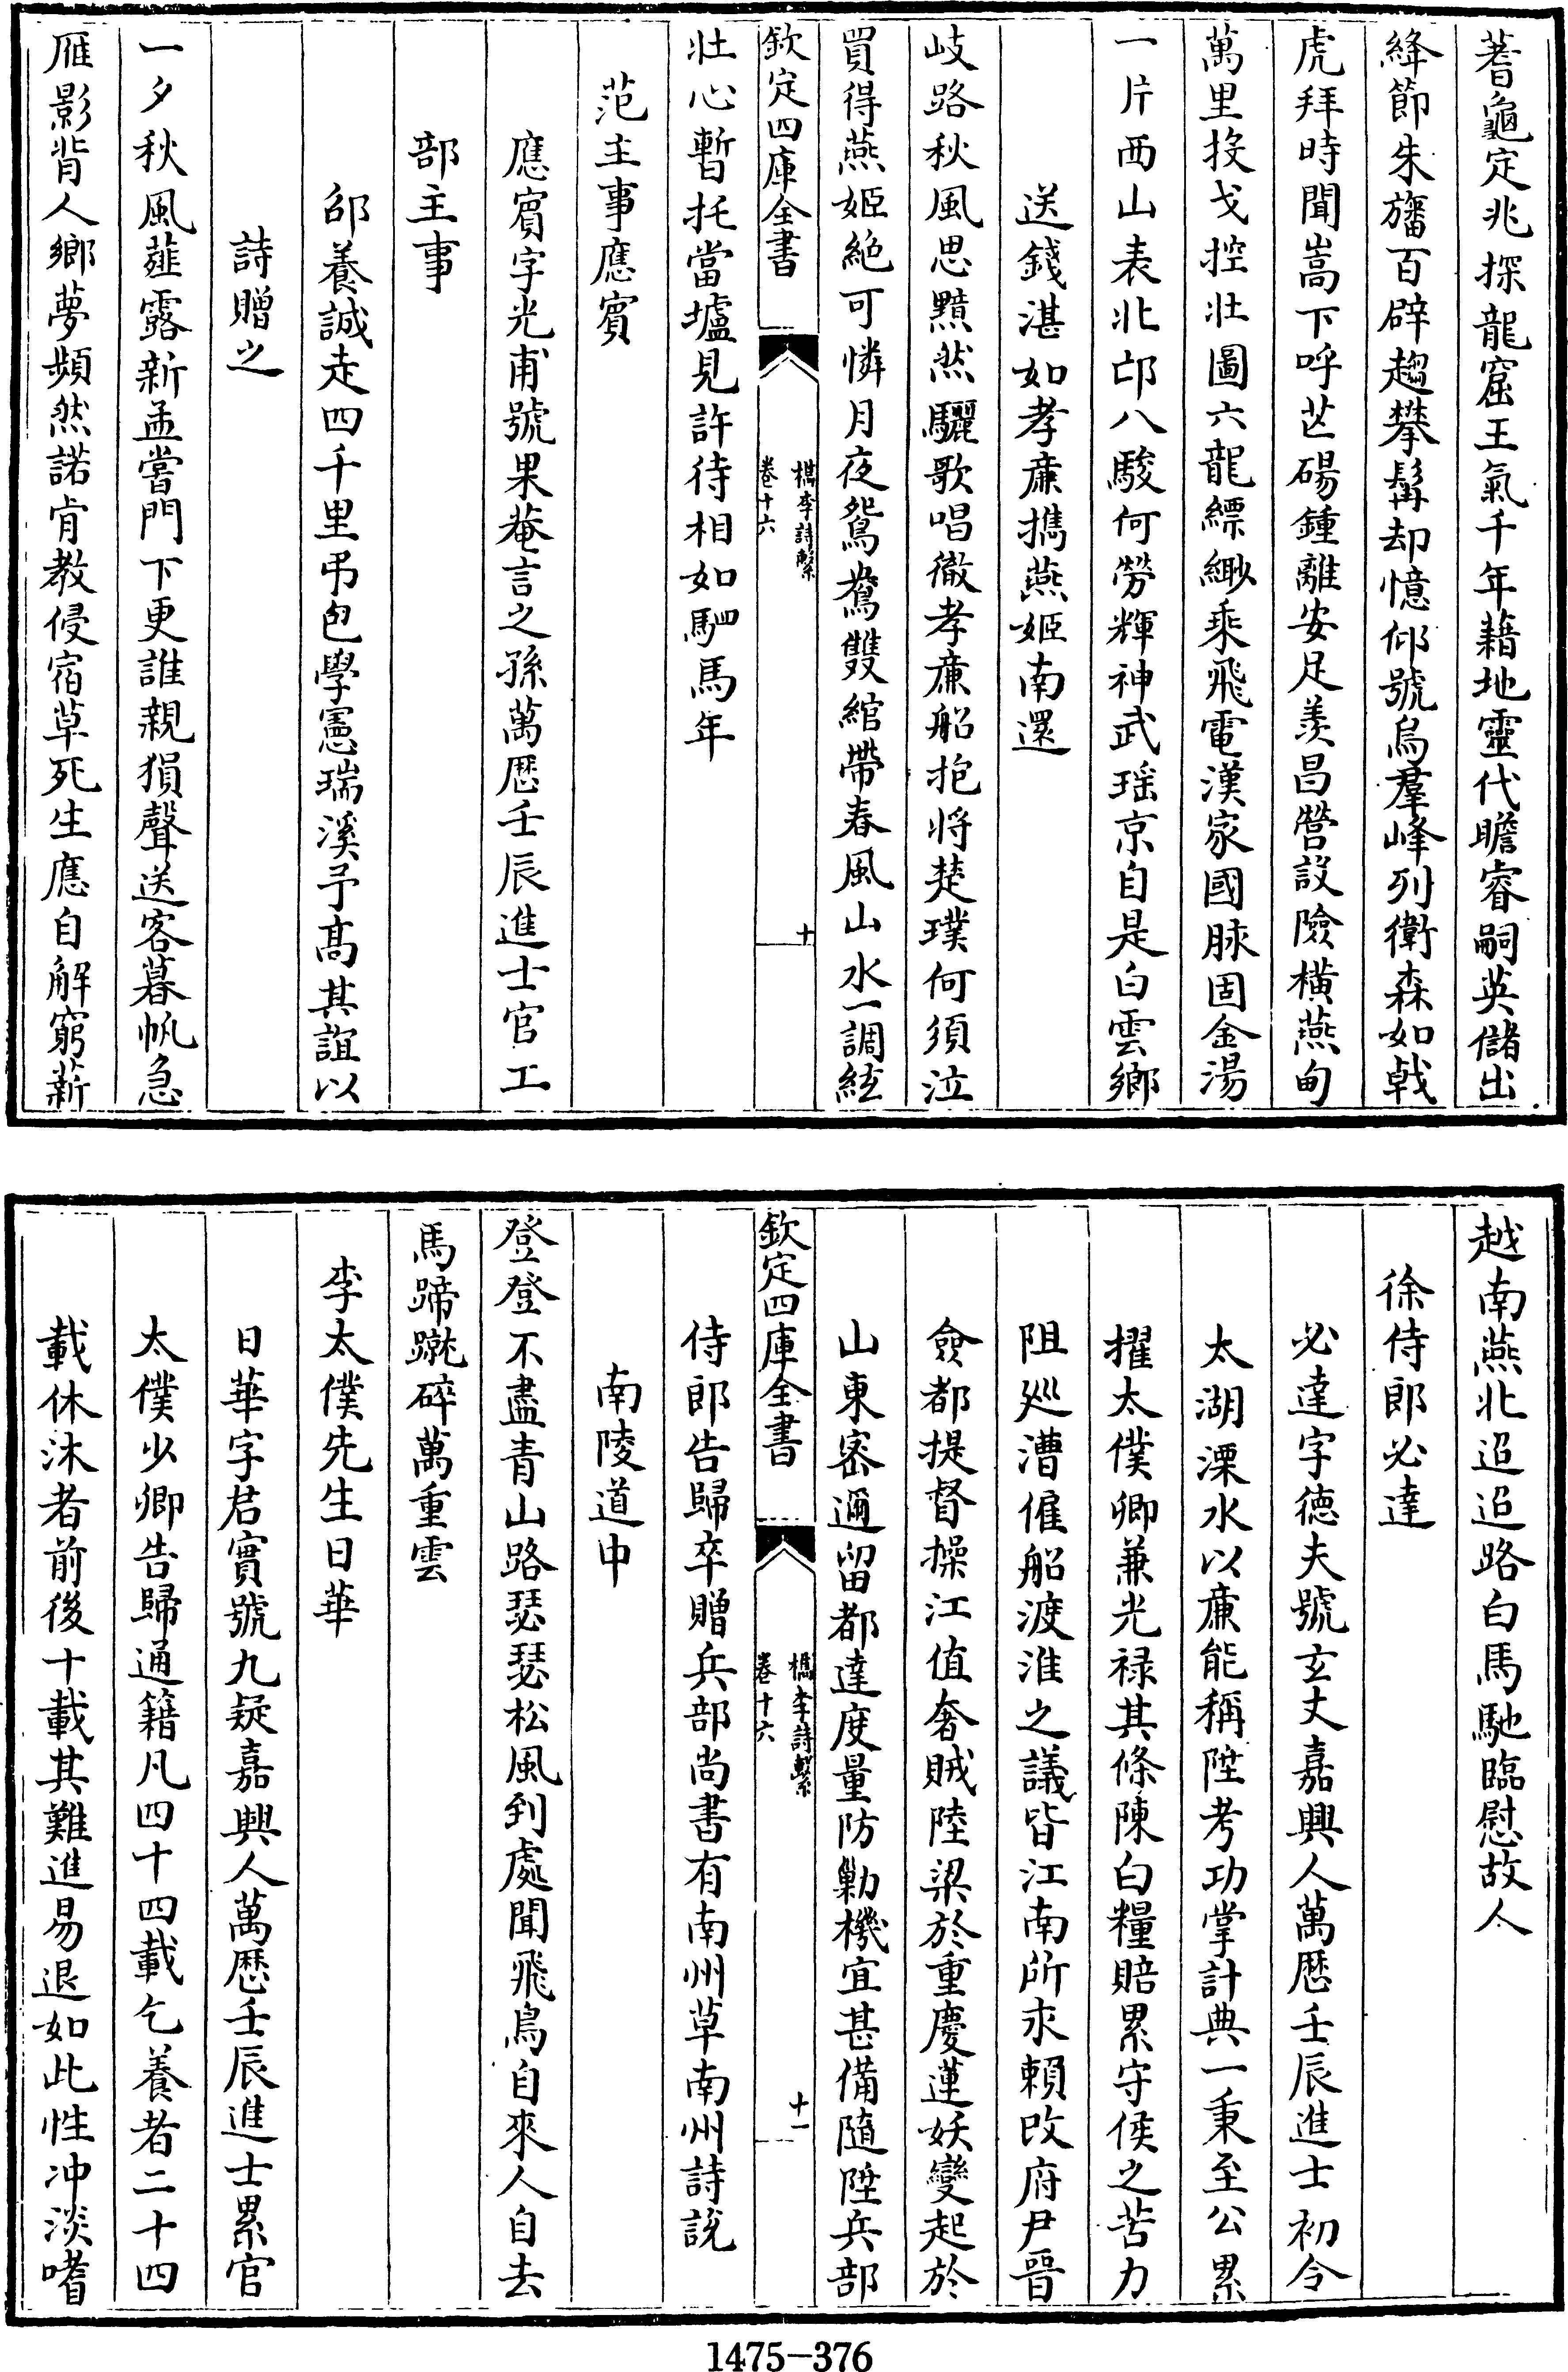 蓍龜定兆探龍窟王氣千年藉地靈代瞻睿嗣英儲出
絳節朱旛百辟趨攀髯却憶仰號烏羣峰列衛森如㦸
虎拜時聞嵩下呼芒碭鍾離安足羨昌營設險橫燕甸
萬里投戈控壮圖六龍縹緲乘飛電漢家國脉固金湯
一片西山表北邙八駿何勞輝神武瑶京自是白雲鄉
送錢湛如孝亷攜燕姬南還
岐路秋風思黯然驪歌唱徹孝亷船抱將楚璞何須泣
買得燕姬絶可憐月夜鴛鴦雙綰帶春風山水一調絃
欽定四庫全書
檇李詩繫
卷十六
十
壮心暫托當壚見許待相如駟馬年
范主事應賓
應賓字光甫號果菴言之孫萬歴壬辰進士官工
部主事
邰養誠走四千里弔包學憲瑞溪予高其誼以
詩贈之
一夕秋風薤露新孟嘗門下更誰親猿聲送客暮帆急
雁影背人鄉夢頻然諾肯教侵宿草死生應自解窮薪
越南燕北迢迢路白馬馳臨慰故人
徐侍郎必達
必達字德夫號玄丈嘉興人萬歴壬辰進士初令
太湖溧水以亷能稱陞考功掌計典一秉至公累
擢太僕卿兼光禄其條陳白糧賠累守候之苦力
阻廵漕僱船渡淮之議皆江南所永賴改府尹晉
僉都提督操江值奢賊陸梁於重慶蓮妖變起於
山東密邇留都達度量防勦機宜甚備隨陞兵部
欽定四庫全書
檇李詩繫
卷十六
十一
侍郎告歸卒贈兵部尚書有南州草南州詩説
南陵道中
登登不盡青山路瑟瑟松風到處聞飛鳥自來人自去
馬蹄蹴碎萬重雲
李太僕先生日華
日華字君實號九疑嘉興人萬歴壬辰進士累官
太僕少卿告歸通籍凡四十四載乞養者二十四
載休沐者前後十載其難進易退如此性冲淡嗜
1475-376